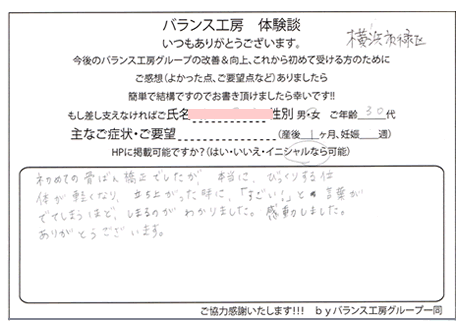 バランス工房 体験談
横浜市緑区
いつもありがとうございます。
今後のバランス工房グループの改善&向上、これから初めて受ける方のために
ご感想(よかった点、ご要望点など)ありましたら
簡単で結構ですのでお書き頂けましたら幸いです!!
もし差し支えなければご氏名 性別 男・女 ご年齢 30 代
主なご症状・ご要望 (産後 1 ヶ月、妊娠 週)
HPに掲載可能ですか?(はい・いいえ・イニシャルなら可能)
初めての骨ばん矯正でしたが、本当に、びっくりする位
体が軽くなり、立ち上がった時に、「すごい!」と 言葉が
でてしまうほど、しまるのがわかりました。感動しました。
ありがとうございます。
ご協力感謝いたします!!! byバランス工房グループ一同